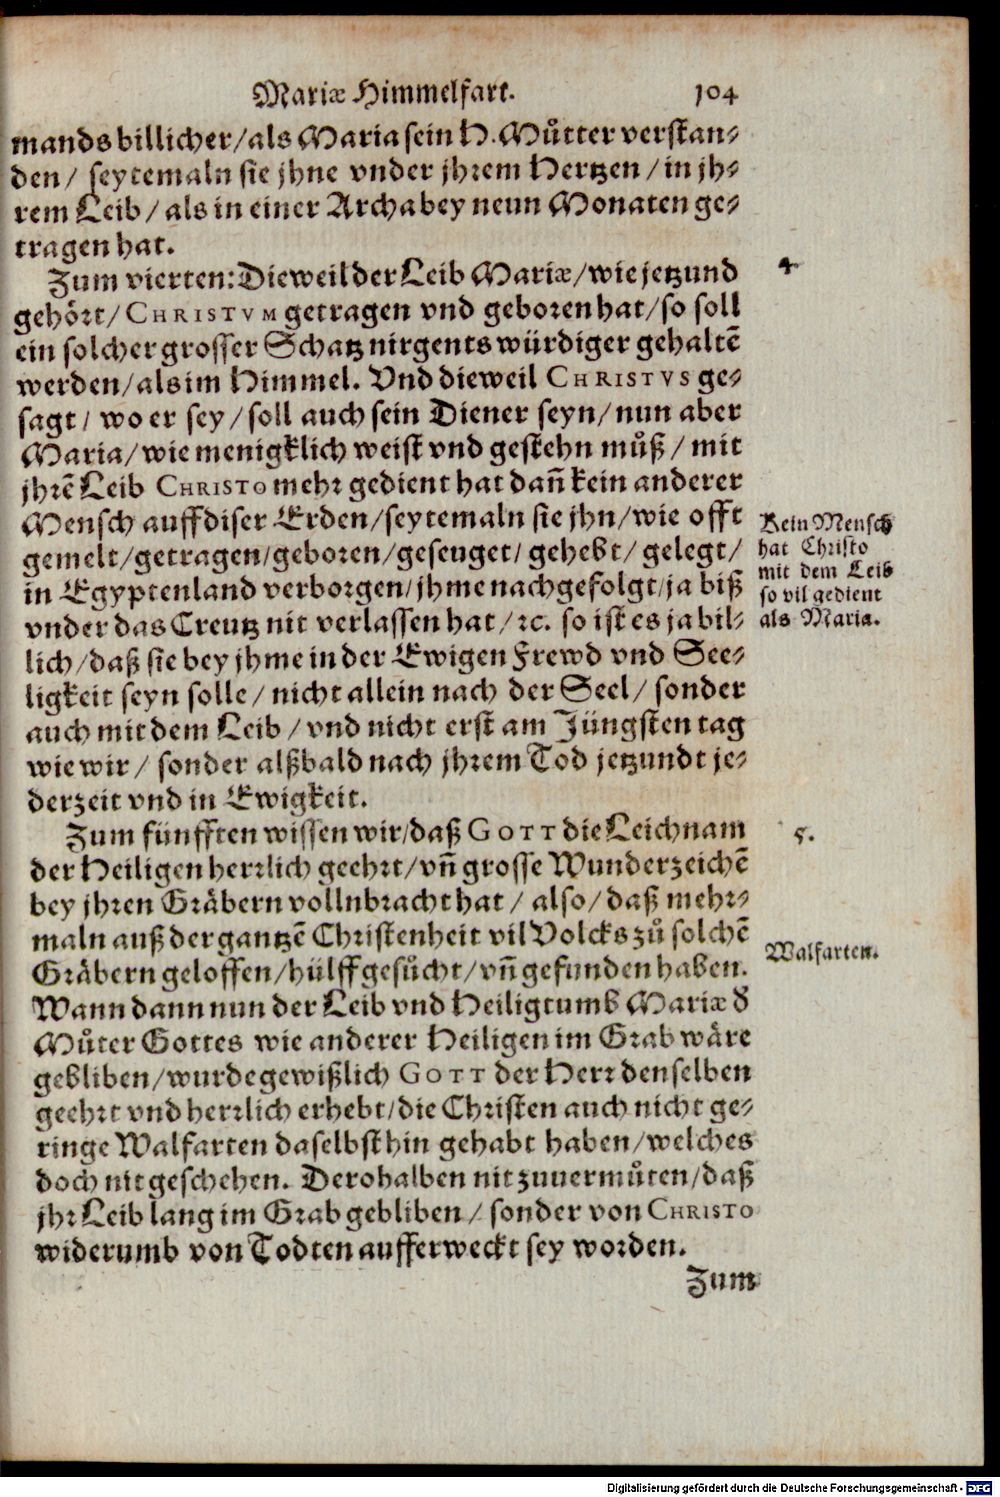 Mariæ Himmelfart. 104
mands billicher/als Maria sein H. Můtter verstan⸗
den/ seytemaln sie jhne vnder jhrem Hertzen/in jh⸗
rem Leib/als in einer Archa bey neun Monaten ge⸗
tragen hat.
Zum vierten: Dieweil der Leib Mariæ/wie jetzund
gehört/CHRISTVM getragen vnd geboren hat/so soll
ein solcher grosser Schatz nirgents würdiger gehaltẽ
werden/als im Himmel. Vnd dieweil CHRISTVS ge⸗
sagt/ wo er sey/soll auch sein Diener seyn/nun aber
Maria/wie menigklich weist vnd gestehn můß/mit
jhrẽ Leib CHRISTO mehr gedient hat dañ kein anderer
Mensch auff diser Erden/seytemaln sie jhn/wie offt
gemelt/getragen/geboren/geseuget/gehebt/gelegt/
in Egyptenland verborgen/jhme nachgefolgt/ja biß
vnder das Creutz nit verlassen hat/ꝛc. so ist es ja bil⸗
lich/daß sie bey jhme in der Ewigen Frewd vnd See⸗
ligkeit seyn solle/nicht allein nach der Seel/sonder
auch mit dem Leib/vnd nicht erst am Jüngsten tag
wie wir/sonder alßbald nach jhrem Tod jetzundt je⸗
derzeit vnd in Ewigkeit.
4.
Kein Mensch
hat Christo
mit dem Leib
so vil gedient
als Maria.
Zum fünfften wissen wir/daß GOTT die Leichnam
der Heiligen herrlich geehrt/vñ grosse Wunderzeichẽ
bey jhren Gräbern vollnbracht hat/also/daß mehr⸗
maln auß der gantzẽ Christenheit vil Volcks zů solchẽ
Gräbern geloffen/hülff gesůcht/vñ gefunden haben.
Wann dann nun der Leib vnd Heiligtumb Mariæ d̕
Můter Gottes wie anderer Heiligen im Grab wäre
gebliben/wurde gewißlich GOTT der Herr denselben
geehrt vnd herrlich erhebt/die Christen auch nicht ge⸗
ringe Walfarten daselbst hin gehabt haben/welches
doch nit geschehen. Derohalben nit zuuermůten/daß
jhr Leib lang im Grab gebliben/sonder von CHRISTO
widerumb von Todten aufferweckt sey worden.
5.
Walfarten.
Zum
Digitalisierung gefördert durch die Deutsche Forschungsgemeinschaft - DFG